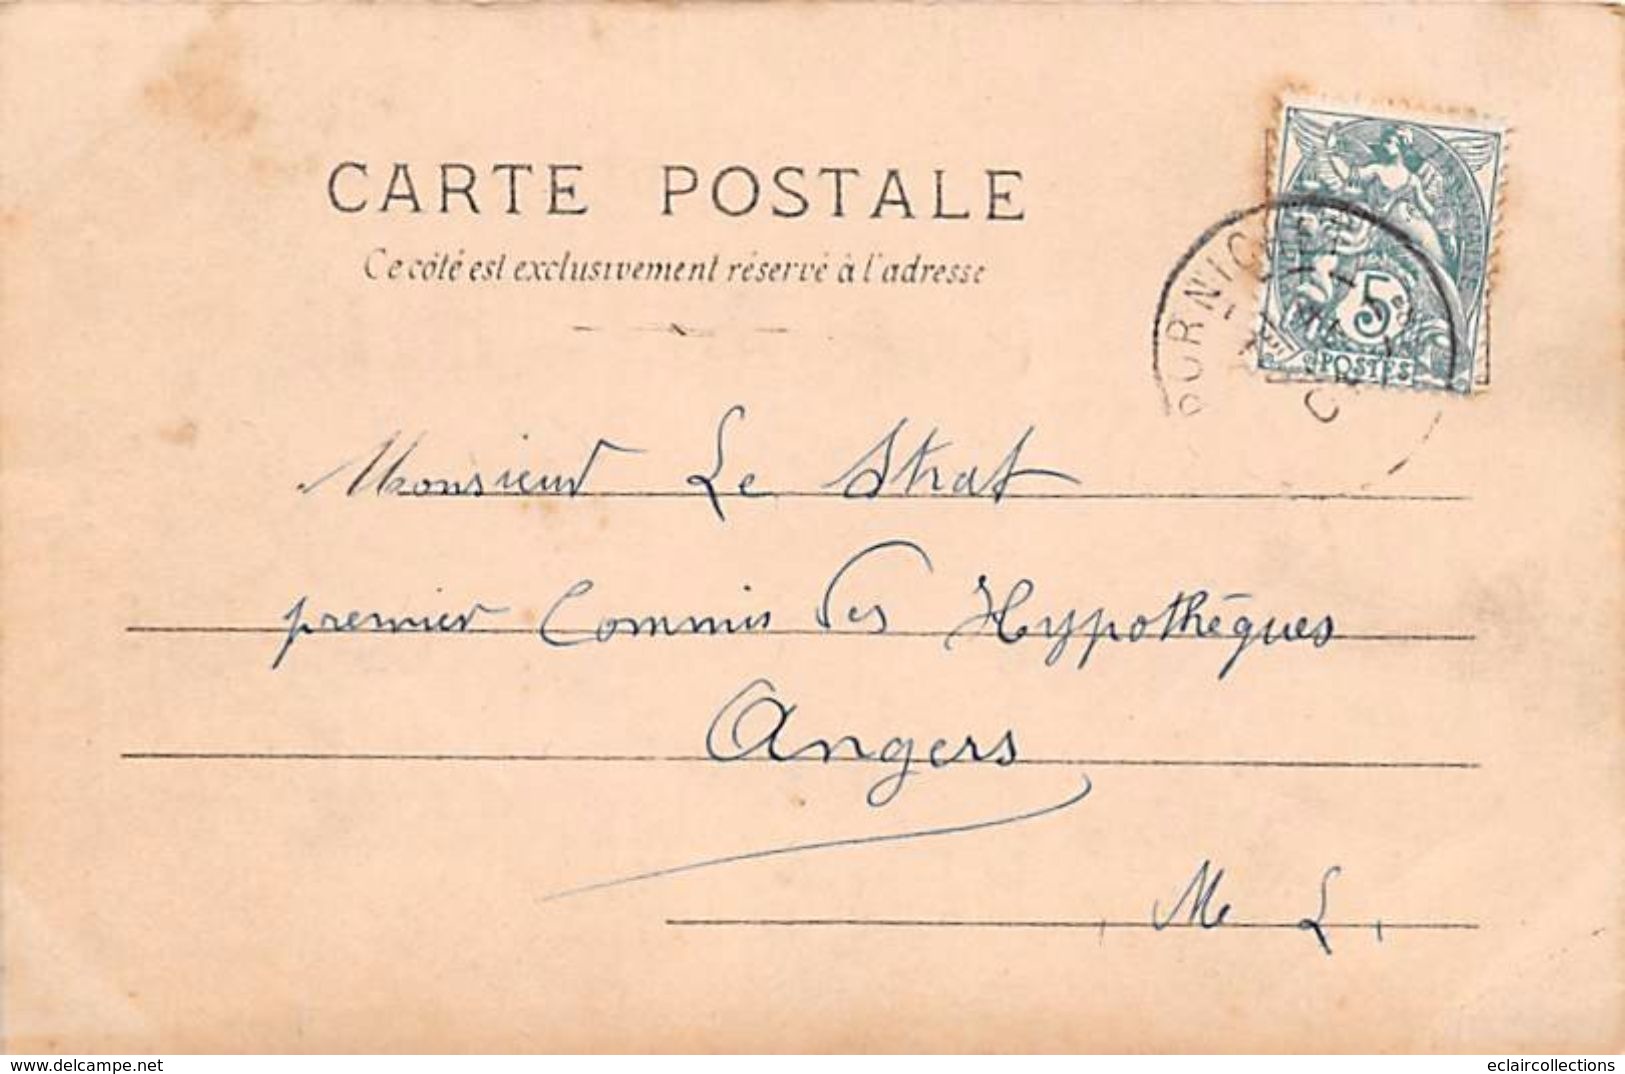 CARTE POSTALE
Ce côté est exclusivement réservé à l'adresse
5
POSTES
Monsieur Le Strat
premier Commis des Hypothèques
Angers
M e L.
www.delcampe.net
eclaircollections